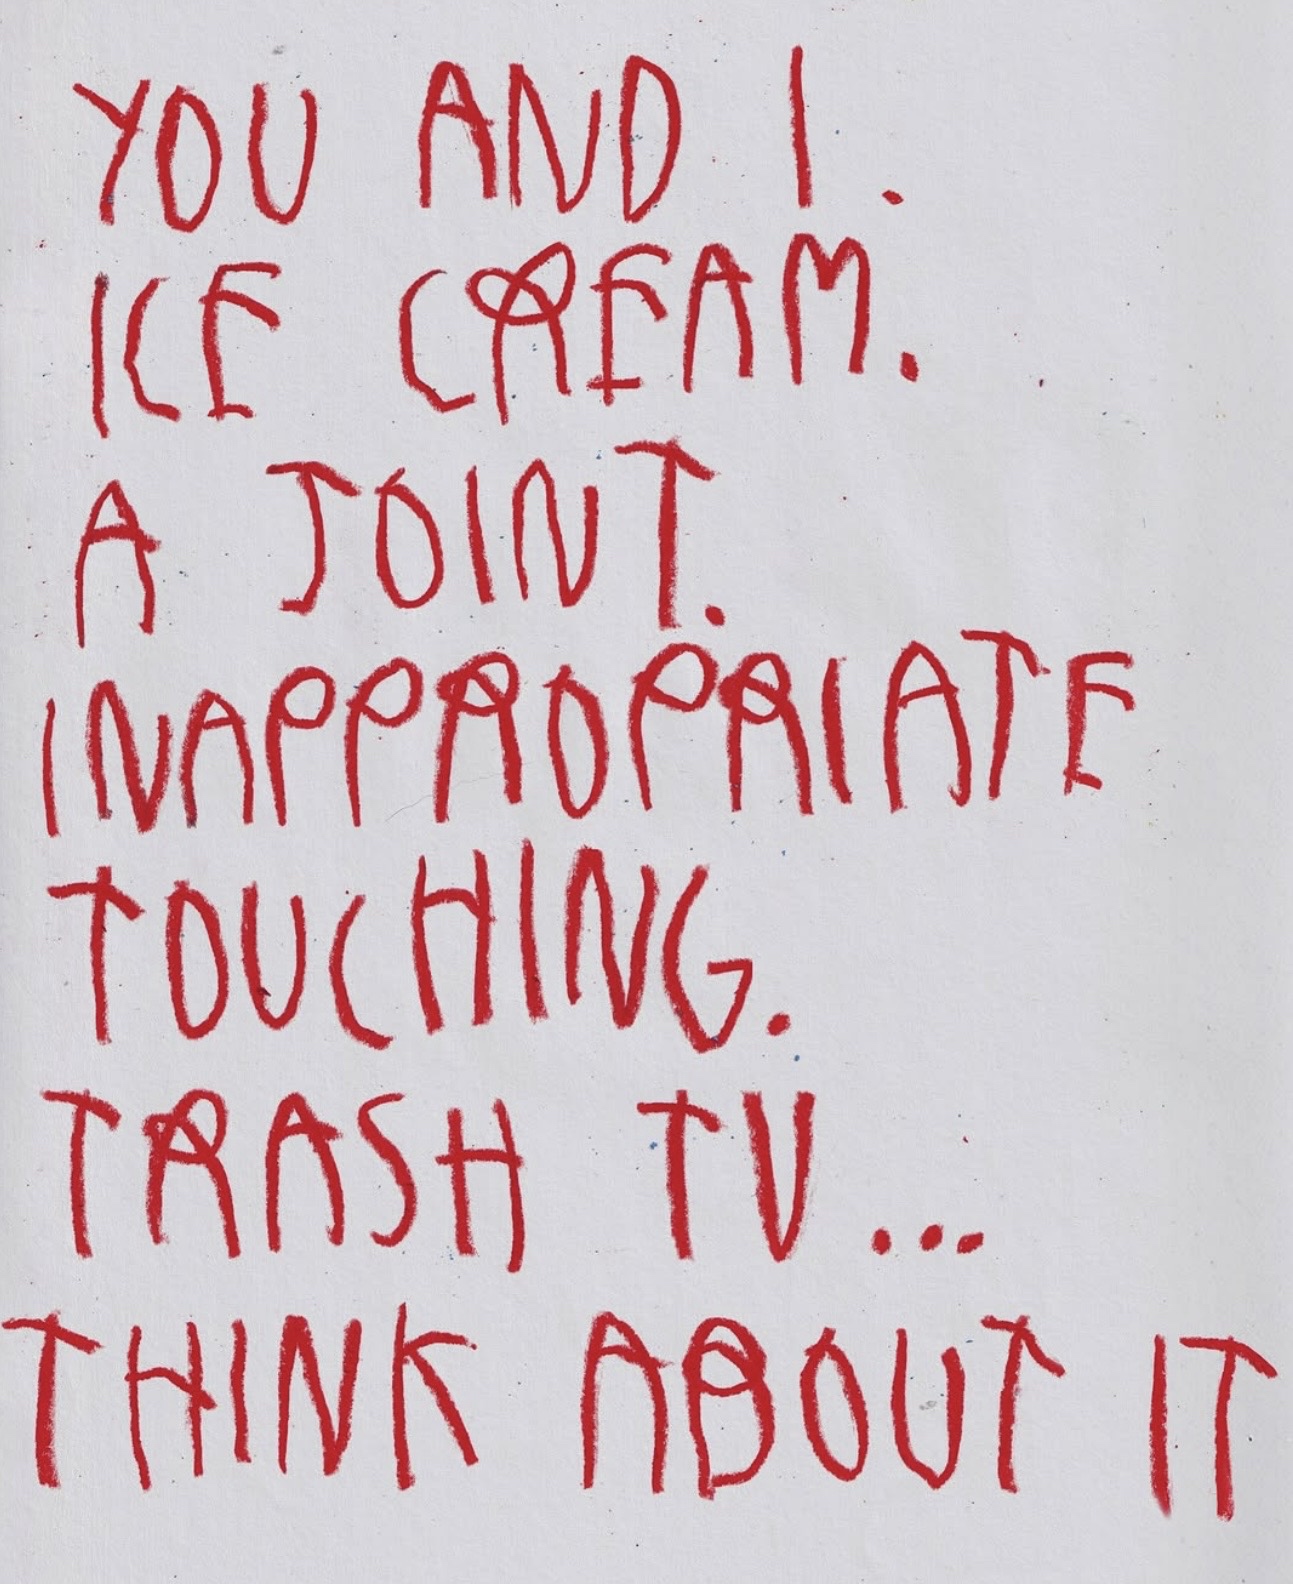 YOU AND I.
ICE CREAM.
A JOINT.
INAPPROPRIATE
TOUCHING.
TRASH TV...
THINK ABOUT IT